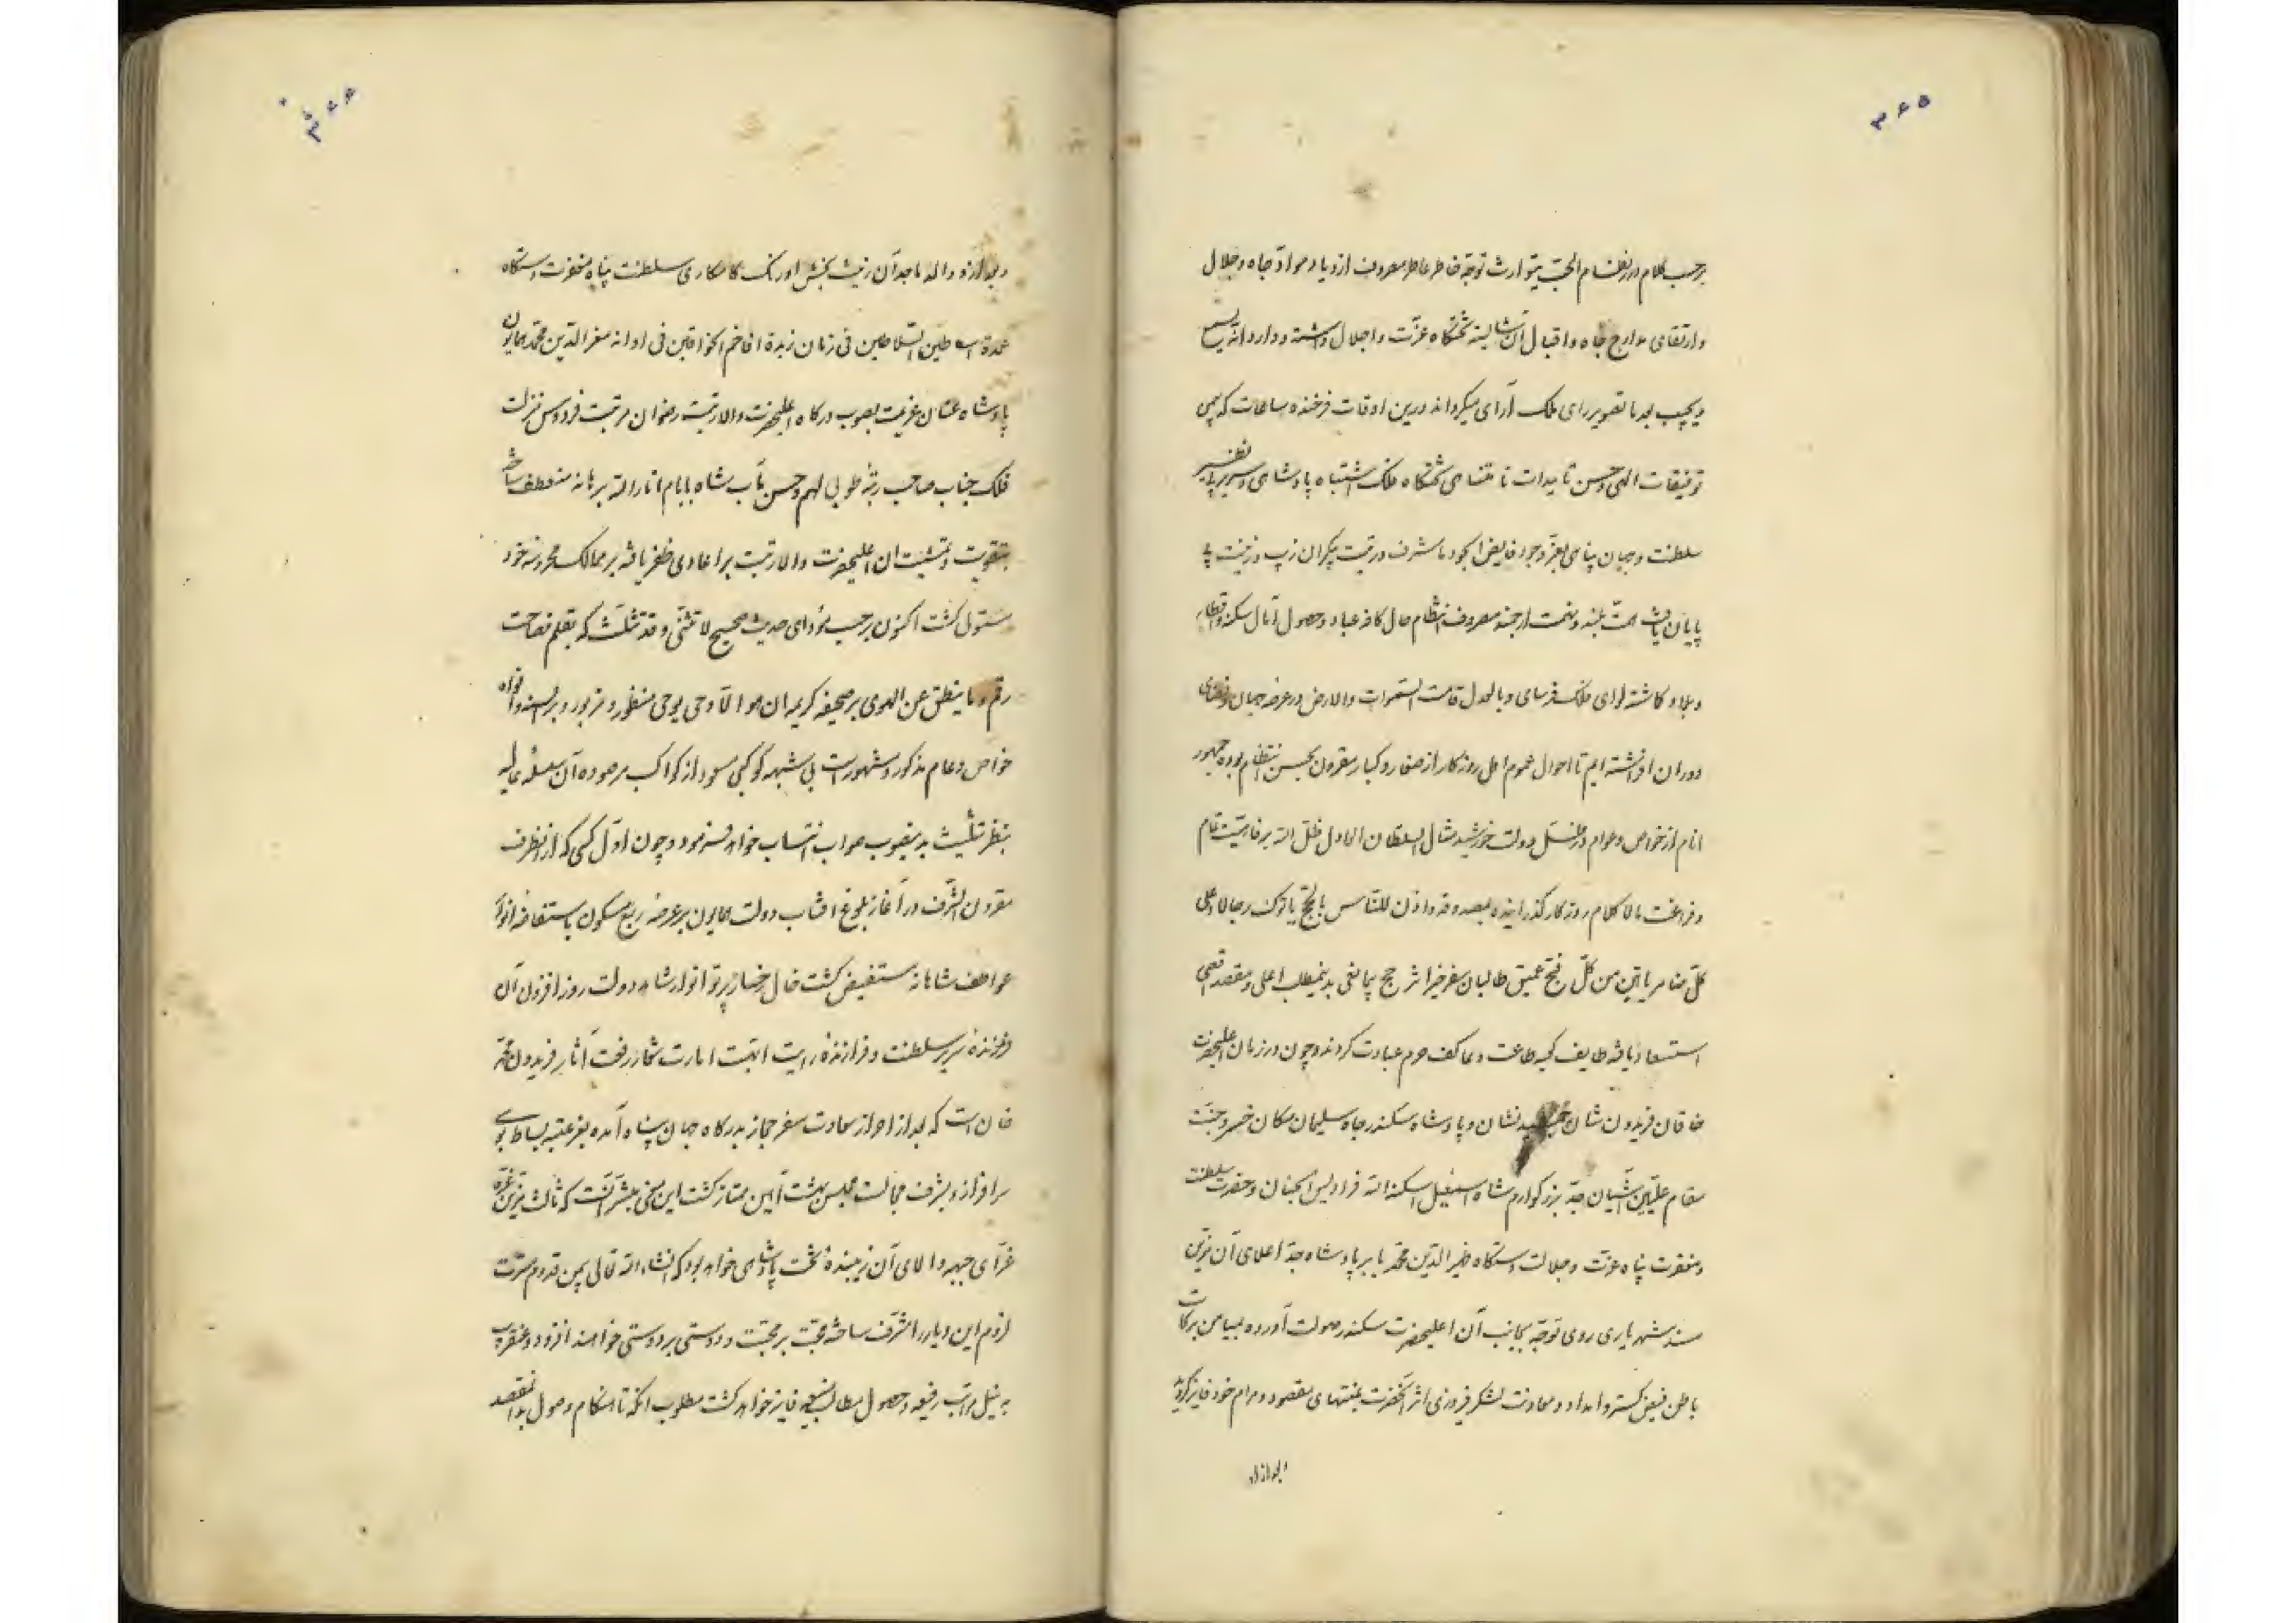 ۳۶۵
برحسب کلام درر نظام الحبّ یتوارث توجّه خاطر عاطر مصروف ازدیاد مواد جاه و جلال
و ارتقای مدارج جاه و اقبال آن شایسته تختگاه عزّت و اجلال داشته و دارد انه یسمع
و یجیب بعد ما تصویر رای ملک آرای میگرداند درین اوقات فرخنده ساعات که بیمن
توفیقات الهی و حسن تأییدات نامتناهی تختگاه فلک اشتباه پادشاهی و سریر بی‌نظیر
سلطنت و جهان پناهی بعزّ وجود فایض الجود ما شرف و رتبت بیکران و زیب و زینت بی
پایان یافت همت بلند و نهمت ارجمند مصروف انتظام حال کافه عباد و حصول آمال سکنه و قطان
بلاد گاشته لوای فلک‌فرسای و بالعدل قامت السموات و الارض در عرصه جهان و فضای
دوران افراشته ایم تا احوال عموم اهل روزکار از صغار و کبار مقرون بحسن انتظام بوده جمهور
انام از خواص و عوام در ظل دولت خورشید مثال السلطان العادل ظل الله برفاهیّت تمام
و فراغت مالا کلام روزکار کذرانیده بمصدوقه و اذن للناس بالحج یاتوک رجالا و علی
کلّ ضامر یاتین من کلّ فجّ عمیق طالبان سفر خیر اثر حج بمانعی بدینمطلب اعلی و مقصد اقصی
استسعاد یافته طایف کعبه طاعت و عاکف حرم عبادت کردند و چون در زمان اعلیحضرت
خاقان فریدون شان جمشید نشان و پادشاه سکندر جاه سلیمان مکان خسرو جنّت
مقام علیّین آشیان جدّ بزرکوارم شاه اسمعیل اسکنه الله فرادیس الجنان و حضرت سلطنت
و مغفرت پناه عزّت و جلالت دستکاه ظهیر الدّین محمّد بابر پادشاه جدّ اعلای آن مزین
مسند شهریاری روی توجّه بجانب آن اعلیحضرت سکندر صولت آورده بمیامن برکات
باطن فیض کستر و امداد و معاونت لشکر فیروزی اثر آنحضرت بمنتهای مقصود و مرام خود فایز کردید
و بعد ازو
۳۶۶
و بعد ازو والد ماجد آن زینت بخش اورنک کامکاری سلطنت پناه مغفرت دستکاه
عمدة اساطین السلاطین فی زمان زبدة افاخم الخواقین فی اوانه معز الدّین محمّد همایون
پادشاه عنان عزیمت بصوب درکاه اعلیحضرت والا رتبت رضوان مرتبت فردوس منزلت
فلک جناب صاحب رتبهٔ طوبی لهم و حسن مآب شاه بابام انار الله برهانه منعطف ساخته
بتقویت و تمشیت ان اعلیحضرت والا رتبت بر اعادی ظفر یافته بر ممالک محروسه خود
مستولی کشت اکنون برحسب مؤدای حدیث صحیح لا تثنّی و قد تثلّث که بقلم فصاحت
رقم و ما ینطق عن الهوی بر صحیفه کریمه ان هو الّا وحی یوحی مسطور و مزبور و بر السنه و افواه
خواص و عوام مذکور و مشهورست بی شبهه کوکبی مسعود از کواکب مرصوده آن سلسله عالیه
بنظر تثلیث بدینصوب صواب انتساب خواهد فرمود و چون اوّل کسی که ازانطرف
مقرون الشّرف در آغاز بلوغ افتاب دولت همایون بر عرصه ربع مسکون باستفاضه انوار
عواطف شاهانه مستفیض کشت خال رخسار پرتو انوار شاهد دولت روز افزون آن
فروزندهٔ سریر سلطنت و فرازندهٔ رایت ابّهت امارت شعار رفعت آثار فریدون محمّد
خان است که بعد از احراز سعادت سفر حجاز بدرکاه جهان پناه آمده بعز عتبه بساط بوسی
سرافراز و بشرف مجالست مجلس بهشت آیین ممتاز کشت این معنی مبشّر آنست که ثالث مزین غرّه
غرّای جبهه والای آن زیبندهٔ تخت پادشاهی خواهد بود که انشاء الله تعالی بیمن قدوم مسرّت
لزوم این دیار را مشرّف ساخته محبّت بر محبّت و دوستی بر دوستی خواهند افزود و عنقریب
به نیل مراتب رفیعه و حصول مطالب منیعه فایز خواهد کشت مطلوب انکه تا هنکام وصول بدانمقصد